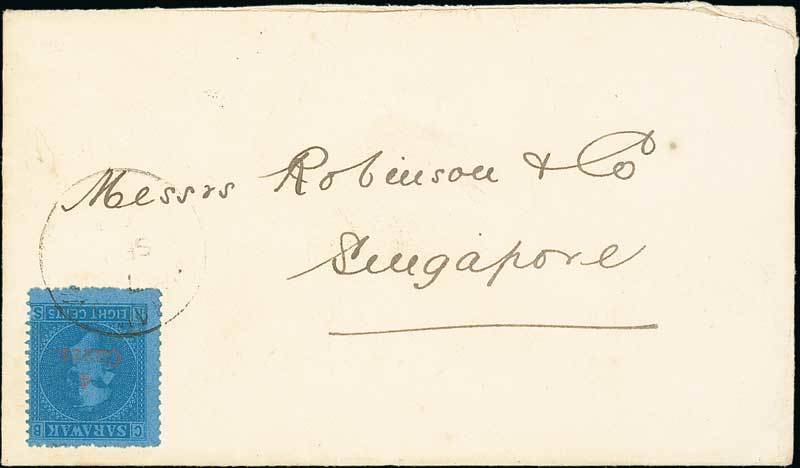 Messrs Robinson & Co
Singapore
SARAWAK
C B
4
Cents
EIGHT CENTS
R S